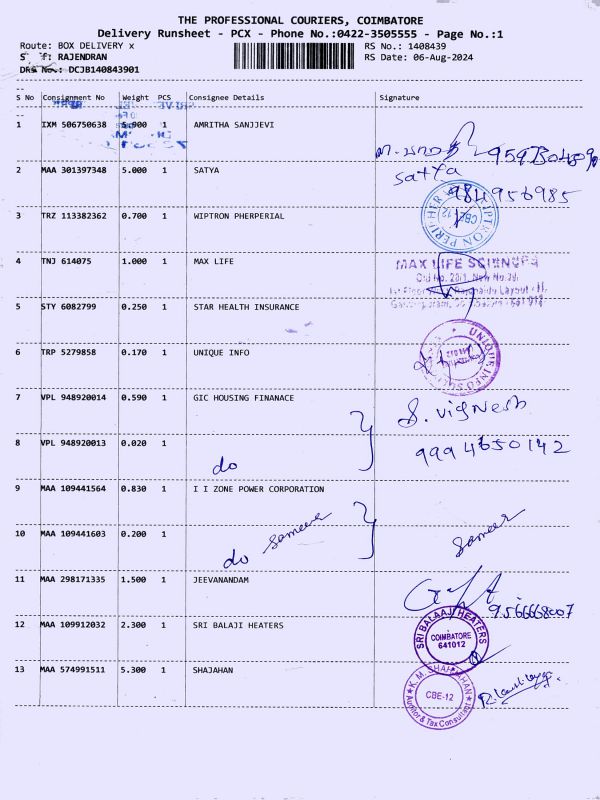 THE PROFESSIONAL COURIERS, COIMBATORE
Delivery Runsheet - PCX - Phone No.:0422-3505555 - Page No.:1
Route: BOX DELIVERY x RS No.: 1408439
RAJENDRAN RS Date: 06-Aug-2024
DRS No.: DCJB140843901
S No Consignment No Weight PCS Consignee Details Signature
1 IXM 506750638 5.900 1 AMRITHA SANJJEVI
2 MAA 301397348 5.000 1 SATYA satya
9841956985
3 TRZ 113382362 0.700 1 WIPTRON PHERPERIAL
4 TNJ 614075 1.000 1 MAX LIFE MAX LIFE SCIENCES
5 STY 6082799 0.250 1 STAR HEALTH INSURANCE
6 TRP 5279858 0.170 1 UNIQUE INFO UNIQUE INFO
7 VPL 948920014 0.590 1 GIC HOUSING FINANACE S. Vignesh
8 VPL 948920013 0.020 1 do 9994650142
9 MAA 109441564 0.830 1 I I ZONE POWER CORPORATION
10 MAA 109441603 0.200 1 do Sameer Sameer
11 MAA 298171335 1.500 1 JEEVANANDAM
9566668007
12 MAA 109912032 2.300 1 SRI BALAJI HEATERS SRI BALAAJI HEATERS COIMBATORE 641012
13 MAA 574991511 5.300 1 SHAJAHAN K. M. SHAJAHAN CBE-12 Auditor & Tax Consultant